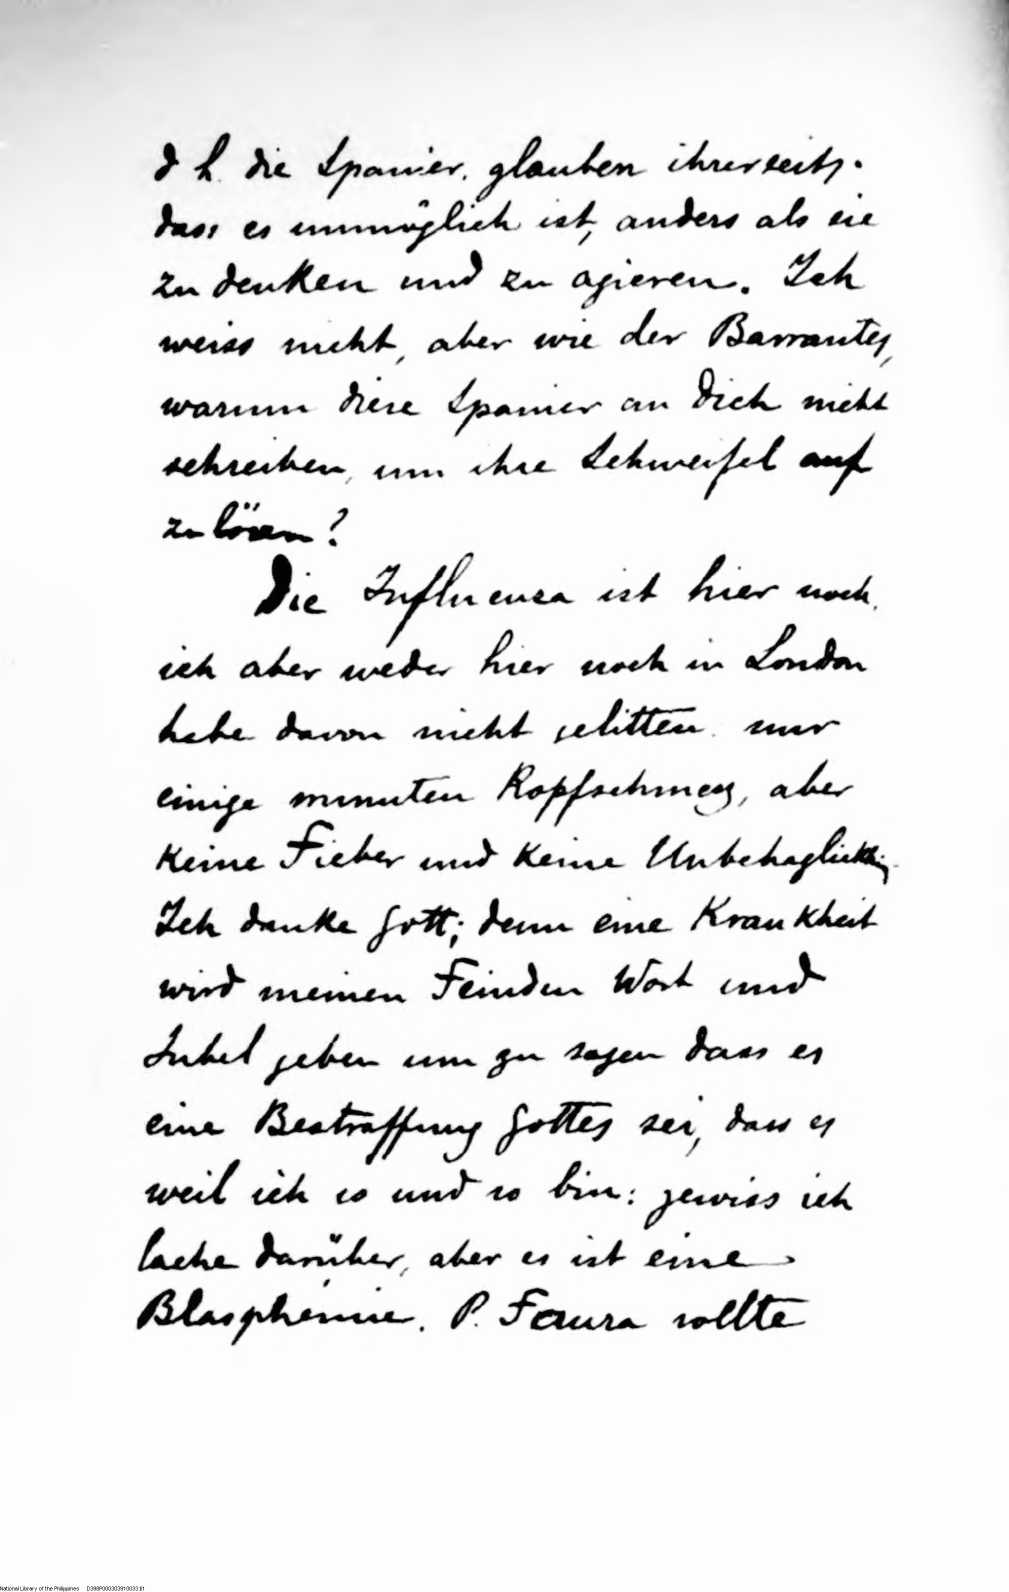 d h. die Spanier, glauben ihrerseits.
dass es unmöglich ist, anders als sie
zu denken und zu agieren. Ich
weiss nicht, aber wie der Barrantes,
warum diese Spanier an Dich nicht
schreiben, um ihre Schweifel auf
zu lösen?
Die Influenza ist hier noch.
ich aber weder hier noch in London
habe davon nicht gelitten. nur
einige minuten Kopfschmerz, aber
keine Fieber und keine
Ich danke Gott; denn eine Krankheit
wird meinen Feinden Wort und
Jubel geben um zu sagen dass es
eine Bestraffung Gottes sei, dass es
weil ich so und so bin: gewiss ich
lache darüber, aber es ist eine
Blasphémie. P. Faura sollte
National Library of the Philippines